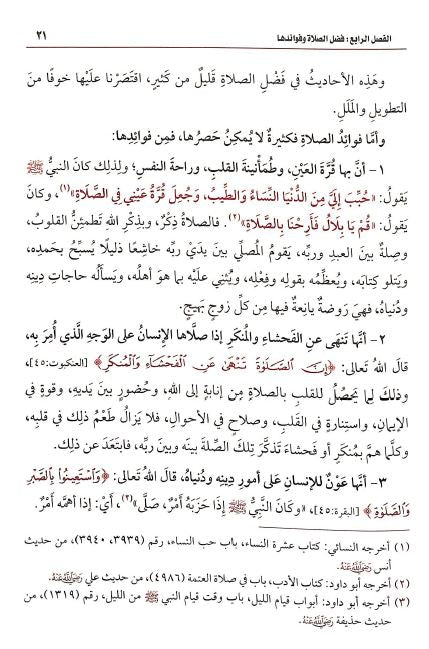 الفصل الرابع: فضل الصلاة وفوائدها ٢١
وهَذِه الأحاديثُ في فَضْلِ الصلاةِ قليلٌ من كَثيرٍ، اقتَصَرْنا علَيْها خوفًا منَ
التطويلِ والمَلَلِ.
وأمَّا فوائدُ الصلاةِ فكَثيرةٌ لا يُمكِنُ حَصرُها، فمِن فوائدِها:
١ - أنَّ بها قُرَّةَ العَيْنِ، وطُمَأْنينةَ القلبِ، وراحةَ النفسِ؛ ولِذلِكَ كانَ النبيُّ ﷺ
يَقولُ: «حُبِّبَ إِلَيَّ مِنَ الدُّنْيَا النِّسَاءُ وَالطِّيبُ، وَجُعِلَ قُرَّةُ عَيْنِي فِي الصَّلَاةِ»(١)، وكانَ
يَقولُ: «قُمْ يَا بِلَالُ فَأَرِحْنَا بِالصَّلَاةِ»(٢). فالصلاةُ ذِكْرٌ، وبذِكْرِ اللهِ تَطمَئِنُّ القلوبُ،
وصِلةٌ بينَ العبدِ وربِّه، يَقومُ المُصلِّي بينَ يدَيْ ربِّه خاشِعًا ذليلًا يُسبِّحُ بحَمدِه،
ويَتلو كِتابَه، ويُعظِّمُه بقولِه وفِعْلِه، ويُثْني علَيْه بما هو أهلُه، ويَسأَلُه حاجاتِ دِينِه
ودُنياهُ، فهِيَ رَوضةٌ يانِعةٌ فيها مِن كلِّ زوجٍ بَهيجٍ.
٢ - أنَّها تَنهَى عنِ الفَحشاءِ والمُنكَرِ إذا صلَّاها الإنسانُ على الوجهِ الَّذي أُمِرَ بِه،
قالَ اللهُ تعالى: ﴿إِنَّ ٱلصَّلَوٰةَ تَنْهَىٰ عَنِ ٱلْفَحْشَآءِ وَٱلْمُنكَرِ﴾ [العنكبوت:٤٥]،
وذلِكَ لِما يَحصُلُ للقلبِ بالصلاةِ مِن إنابةٍ إلى اللهِ، وحُضورٍ بينَ يدَيْهِ، وقوةٍ في
الإيمانِ، واستِنارةٍ في القَلبِ، وصلاحٍ في الأحوالِ، فلا يَزالُ طَعْمُ ذلِكَ في قلبِه،
وكلَّما هَمَّ بمُنكَرٍ أو فَحشاءَ تَذكَّرَ تِلكَ الصِّلةَ بينَه وبينَ ربِّه، فابتَعَدَ عن ذلِكَ.
٣ - أنَّها عَوْنٌ للإنسانِ على أمورِ دِينِه ودُنياهُ، قالَ اللهُ تعالى: ﴿وَٱسْتَعِينُوا۟ بِٱلصَّبْرِ
وَٱلصَّلَوٰةِ﴾ [البقرة:٤٥]، «وكَانَ النَّبِيُّ ﷺ إِذَا حَزَبَهُ أَمْرٌ، صَلَّى»(٣)، أَيْ: إذا أهَمَّه أَمْرٌ.
(١) أخرجه النسائي: كتاب عشرة النساء، باب حب النساء، رقم (٣٩٣٩، ٣٩٤٠)، من حديث
أنس رَضِيَ اللَّهُ عَنْهُ.
(٢) أخرجه أبو داود: كتاب الأدب، باب في صلاة العتمة (٤٩٨٦)، من حديث علي رَضِيَ اللَّهُ عَنْهُ.
(٣) أخرجه أبو داود: أبواب قيام الليل، باب وقت قيام النبي ﷺ من الليل، رقم (١٣١٩)، من
حديث حذيفة رَضِيَ اللَّهُ عَنْهُ.